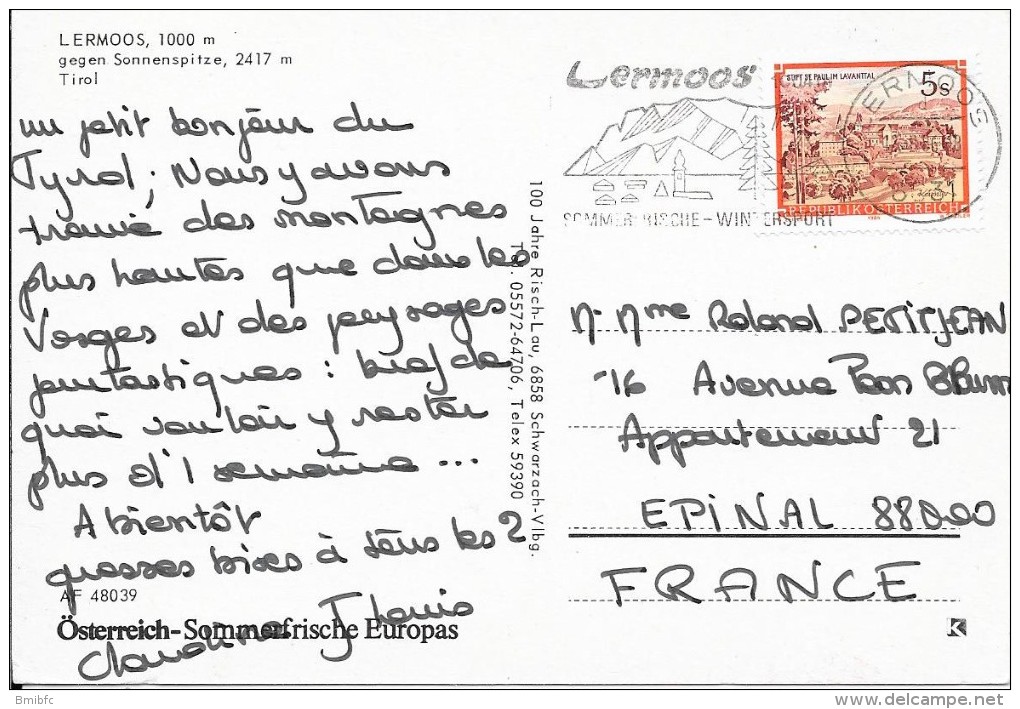 LERMOOS, 1000 m
gegen Sonnenspitze, 2417 m
Tirol
un petit bonjour du
Tyrol; Nous y avons
trouvé des montagnes
plus hautes que dans les
Vosges et des paysages
fantastiques : bref de
quoi vouloir y rester
plus d'1 semaine ...
A bientôt
grosses bises à vous les 2
AF 48039
Österreich-Sommerfrische Europas
Claudine J Louis
100 Jahre Risch-Lau, 6858 Schwarzach-Vlbg.
Tel. 05572-64706, Telex 59390
Lermoos
SOMMERFRISCHE - WINTERSPORT
STIFT ST. PAUL IM LAVANTTAL
5s
REPUBLIK ÖSTERREICH
LERMOOS
31
M. Mme Roland PETITJEAN
16 Avenue Léon Blum
Appartement 21
EPINAL 88000
FRANCE
K
Bmibfc
delcampe.net